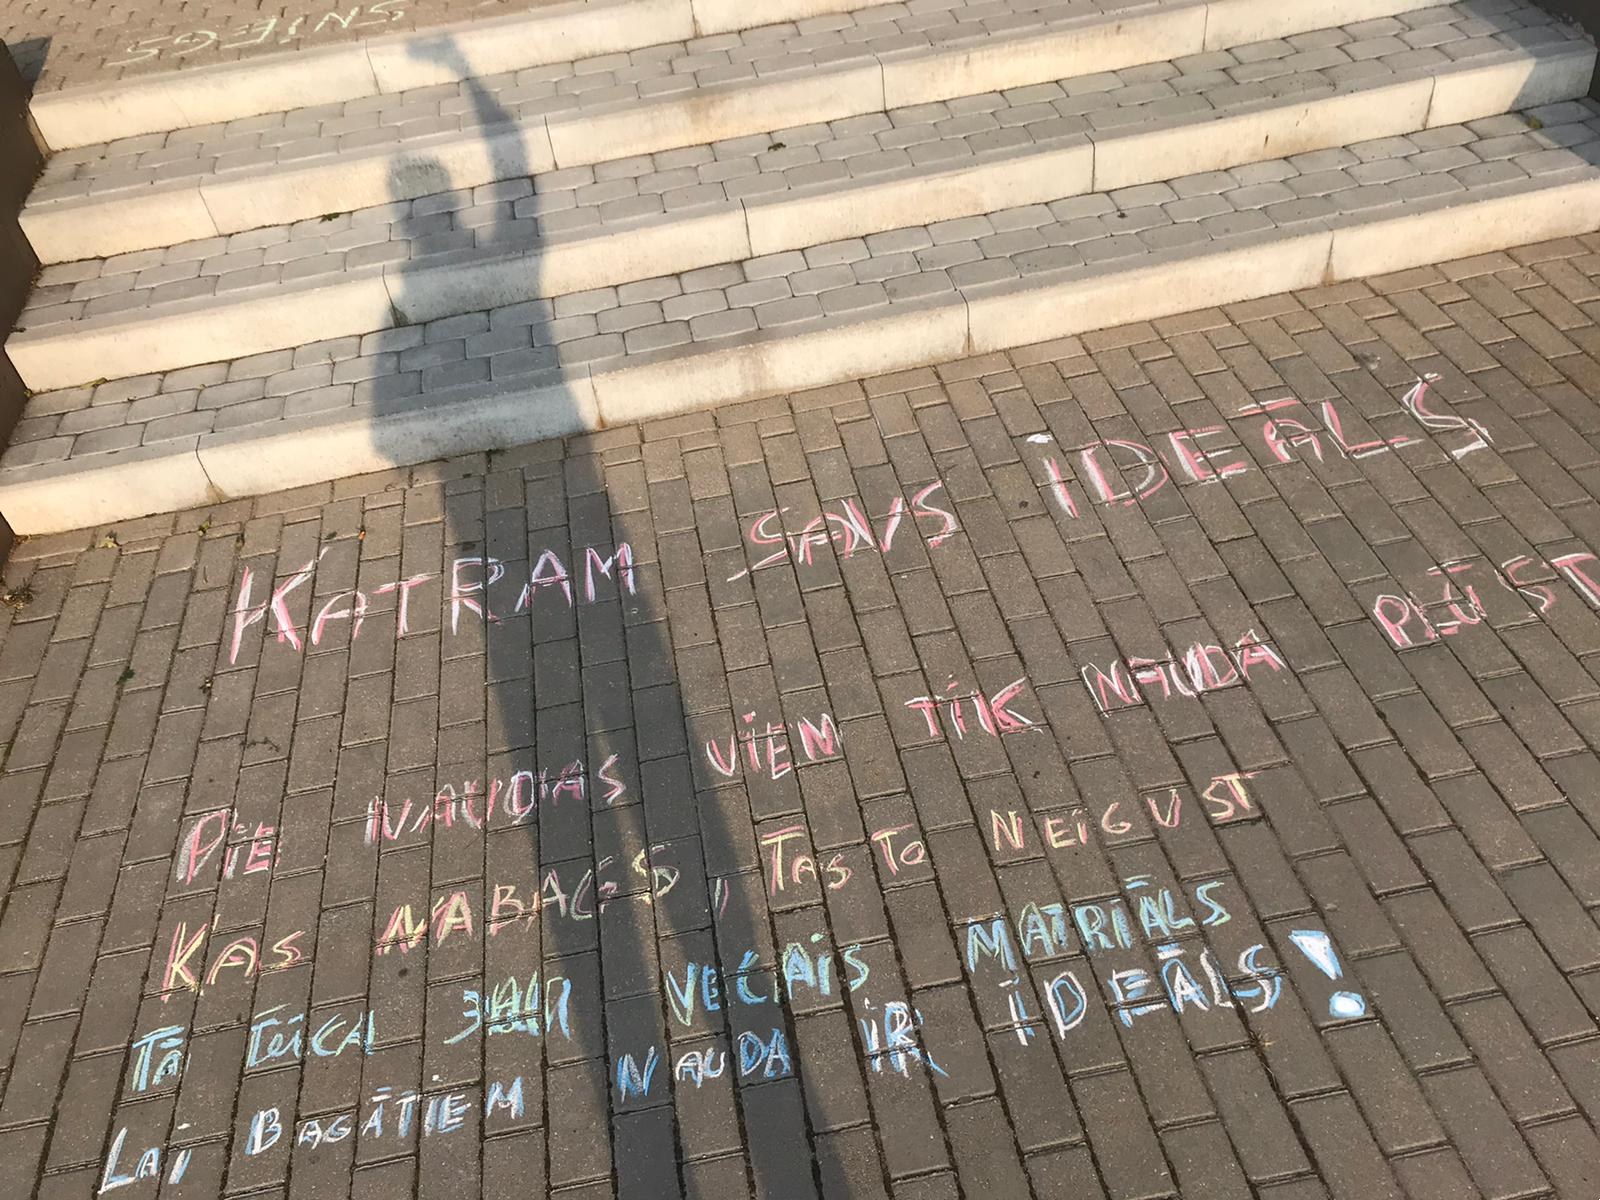 SNIEGS
KATRAM SAVS IDEĀLS
PIE NAUDAS VIEN TIK NAUDA PLŪST
KAS NABAGS, TAS TO NEIGUST
TĀ TEICA VECAIS MATRIĀLS
LAI BAGĀTIEM NAUDA IR IDEĀLS!